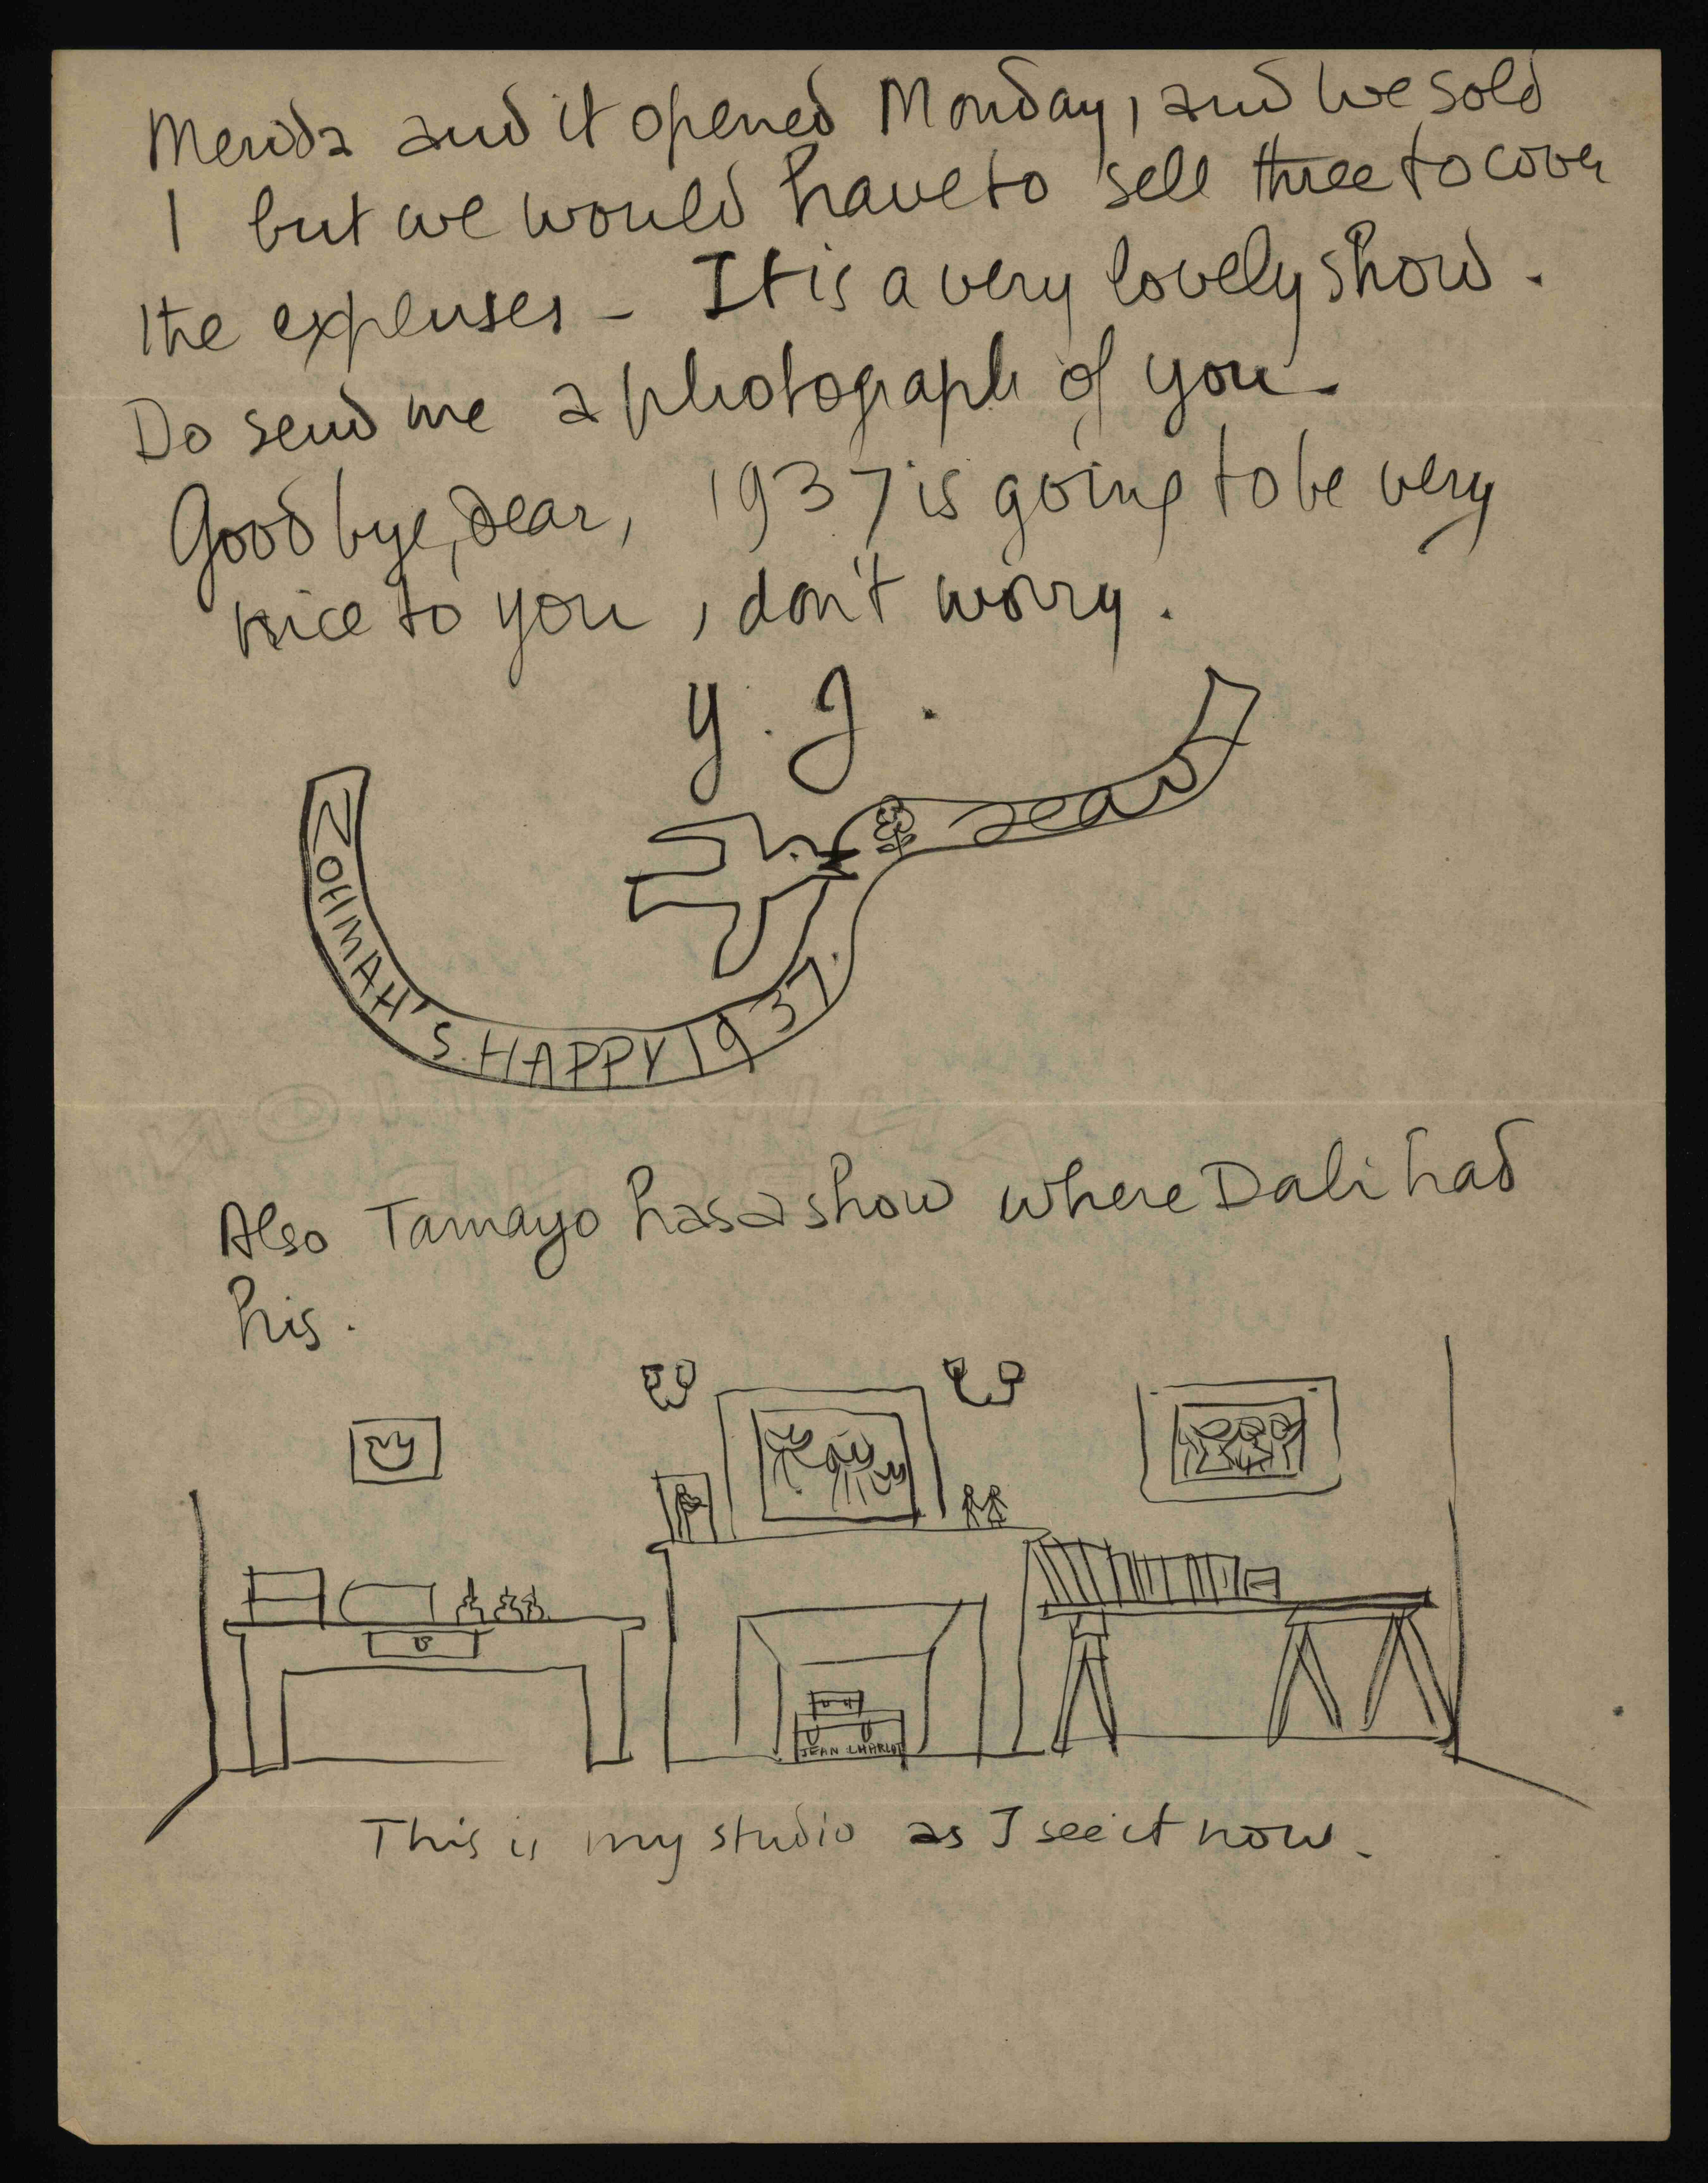 Merida and it opened Monday, and we sold
1 but we would have to sell three to cover
the expenses - It is a very lovely show.
Do send me a photograph of you -
Good bye, dear, 1937 is going to be very
nice to you, don't worry.
Y. J.
ZOHMAH'S HAPPY 1937.
Jean
Also Tamayo has a show where Dali had
his.
JEAN CHARLOT
This is my studio as I see it now.